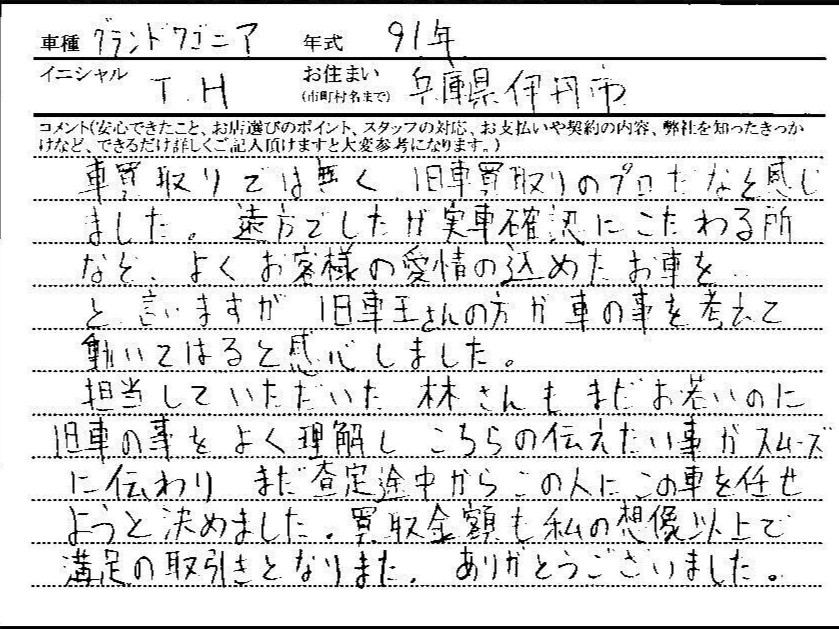 車種 グランドワゴニア 年式 91年
イニシャル T.H お住まい(市町村名まで) 兵庫県伊丹市
コメント(安心できたこと、お店選びのポイント、スタッフの対応、お支払いや契約の内容、弊社を知ったきっか
けなど、できるだけ詳しくご記入頂けますと大変参考になります。)
車買取りでは無く、旧車買取りのプロだなと感じ
ました。遠方でしたが実車確認にこだわる所
など、よくお客様の愛情の込めたお車を…
と言いますが 旧車王さんの方が車の事を考えて
動いてはると感心しました。
担当していただいた 林さんも まだお若いのに
旧車の事をよく理解し こちらの伝えたい事がスムーズ
に伝わり まだ査定途中からこの人にこの車を任せ
ようと決めました。買取金額も私の想像以上で
満足の取引きとなりまた。ありがとうございました。